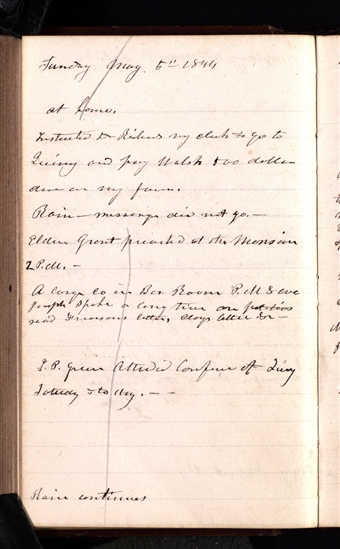 Sunday May 5th 1844
at home.
Instructed Dr Richards my clerk to go to
Quincy and pay Walsh 500 dollars
due on my farm.
Rain — messenger did not go. —
Elder Grant preached at the Mansion
2 P.M. —
A large co in Bar Room P.M & eve
Joseph Spoke a long time on politics
read letter, Clays letter &c —
J. P. Green Attended Confince at Quincy
to day. — —
Rain continues